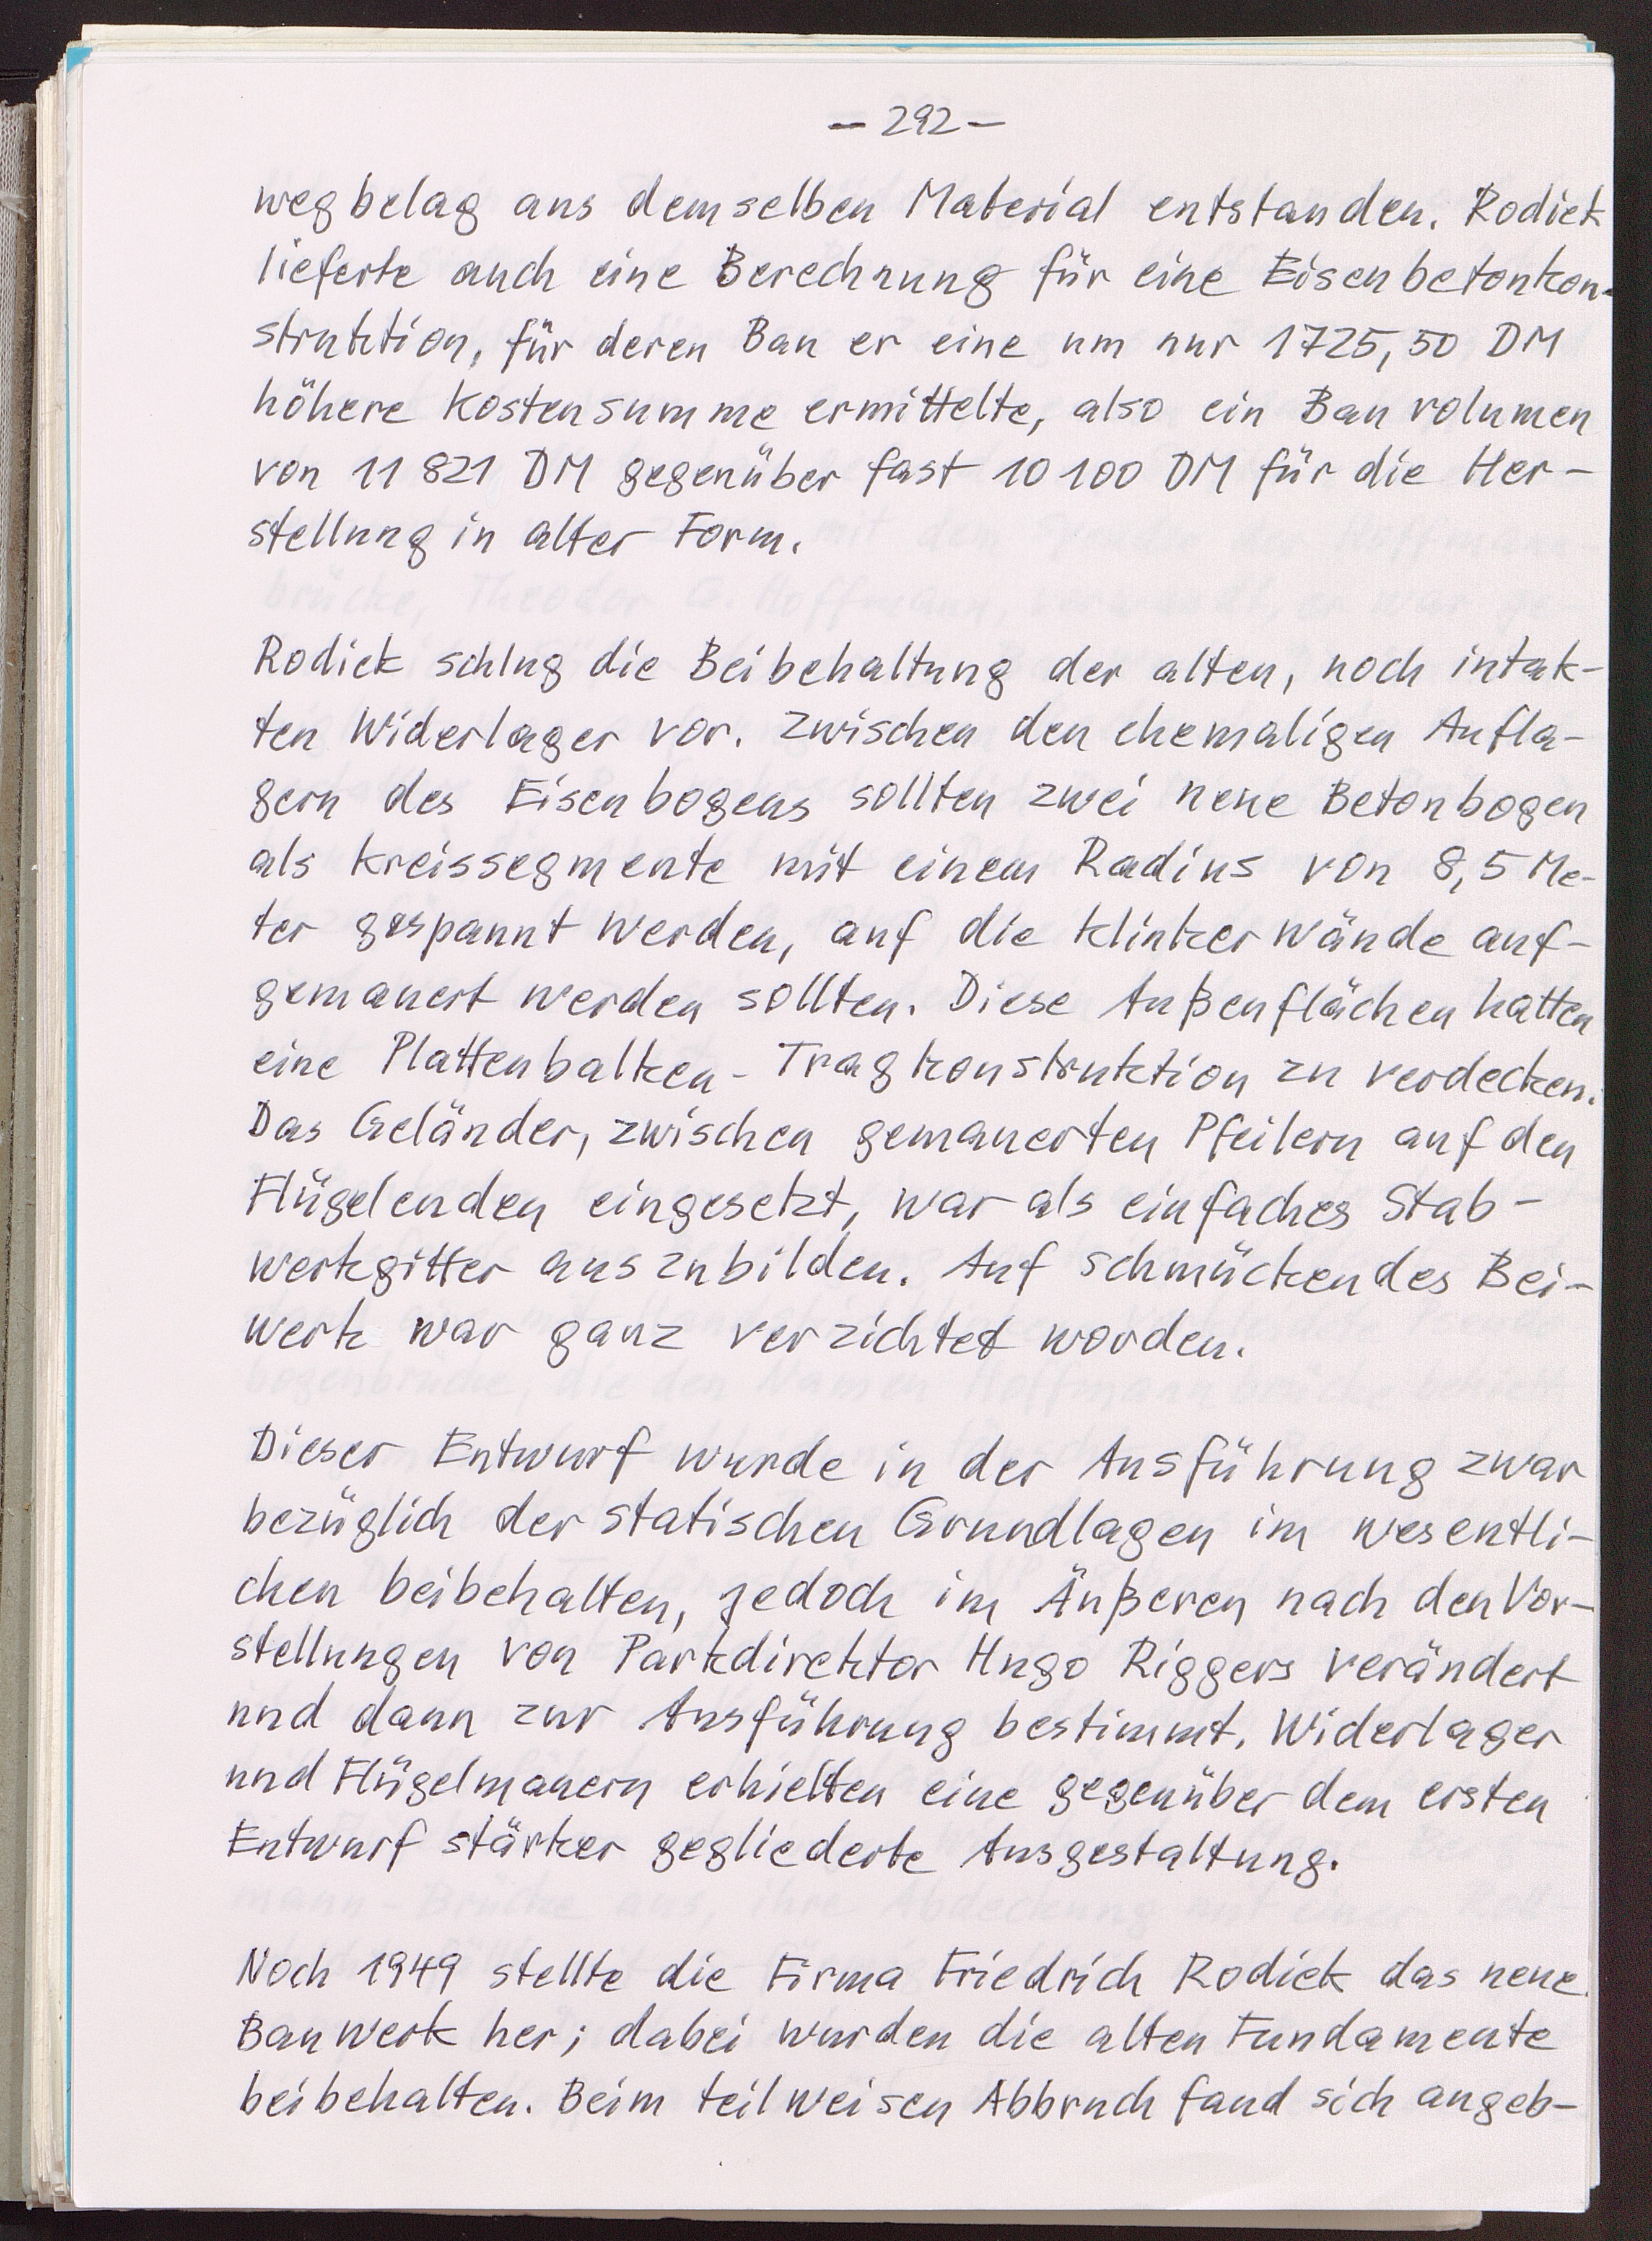 — 292 —
wegbelag aus demselben Material entstanden. Rodiek
lieferte auch eine Berechnung für eine Eisenbetonkon-
struktion, für deren Bau er eine um nur 1725,50 DM
höhere Kostensumme ermittelte, also ein Bauvolumen
von 11 821 DM gegenüber fast 10 100 DM für die Her-
stellung in alter Form.
Rodiek schlug die Beibehaltung der alten, noch intak-
ten Widerlager vor. Zwischen den ehemaligen Aufla-
gern des Eisenbogens sollten zwei neue Betonbogen
als Kreissegmente mit einem Radius von 8,5 Me-
ter gespannt werden, auf die Klinkerwände auf-
gemauert werden sollten. Diese Außenflächen hatten
eine Plattenbalken-Tragkonstruktion zu verdecken.
Das Geländer, zwischen gemauerten Pfeilern auf den
Flügelenden eingesetzt, war als einfaches Stab-
werkgitter auszubilden. Auf schmückendes Bei-
werk war ganz verzichtet worden.
Dieser Entwurf wurde in der Ausführung zwar
bezüglich der statischen Grundlagen im wesentli-
chen beibehalten, jedoch im Äußeren nach den Vor-
stellungen von Parkdirektor Hugo Riggers verändert
und dann zur Ausführung bestimmt. Widerlager
und Flügelmauern erhielten eine gegenüber dem ersten
Entwurf stärker gegliederte Ausgestaltung.
Noch 1949 stellte die Firma Friedrich Rodiek das neue
Bauwerk her; dabei wurden die alten Fundamente
beibehalten. Beim teilweisen Abbruch fand sich angeb-